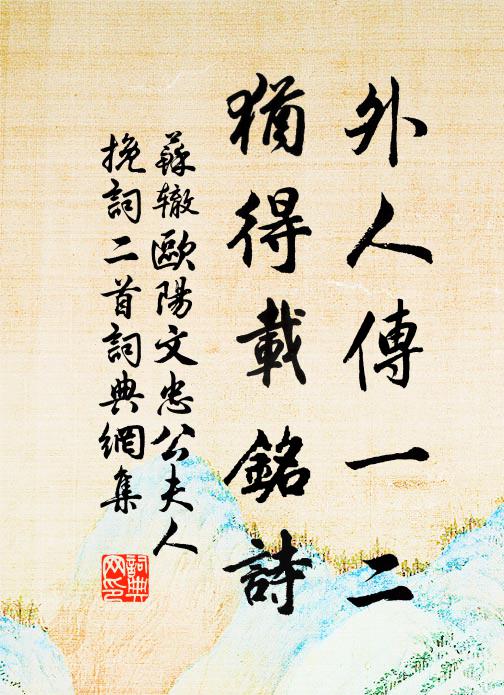 外人傳一二
猶得載銘詩
蘇辙歐陽文忠公夫人
挽詞二首詞典網集
詞典
网印